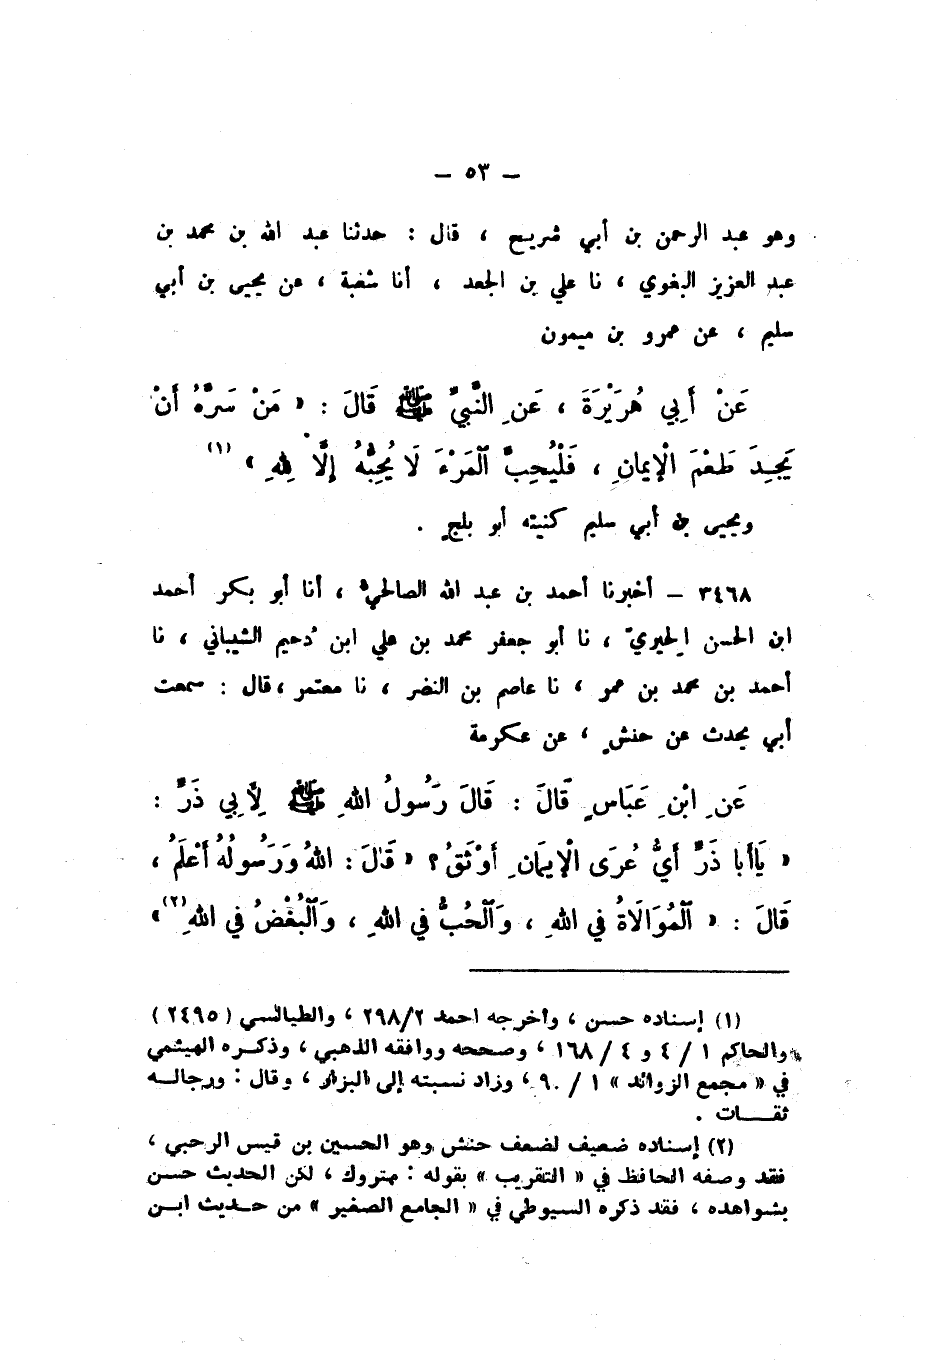 – ٥٣ –
وهو عبد الرحمن بن أبي شريح ، قال : حدثنا عبد الله بن محمد بن
عبد العزيز البغوي ، نا علي بن الجعد ، أنا شعبة ، عن يحيى بن أبي
سليم ، عن عمرو بن ميمون
عَنْ أَبِي هُرَيْرَةَ ، عَنِ النَّبِيِّ ﷺ قَالَ : « مَنْ سَرَّهُ أَنْ
يَجِدَ طَعْمَ الْإِيمَانِ ، فَلْيُحِبَّ ٱلْمَرْءَ لَا يُحِبُّهُ إِلَّا لِلهِ » (١)
ويحيى بن أبي سليم كنيته أبو بلج .
٣٤٦٨ – أخبرنا أحمد بن عبد الله الصالحيُّ ، أنا أبو بكر أحمد
ابن الحسن الحيريّ ، نا أبو جعفر محمد بن علي ابن دُحيم الشيباني ، نا
أحمد بن محمد بن عمو ، نا عاصم بن النضر ، نا معتمر ، قال : سمعت
أبي يحدث عن حنشٍ ، عن عكرمة
عَنِ ابْنِ عَبَاسٍ قَالَ : قَالَ رَسُولُ اللهِ ﷺ لِأَبِي ذَرٍّ :
« يَاأَبَا ذَرٍّ أَيُّ عُرَى الْإِيمَانِ أَوْثَقُ ؟ « قَالَ : اللهُ وَرَسُولُهُ أَعْلَمُ ،
قَالَ : « ٱلْمُوَالَاةُ فِي اللهِ ، وَٱلْحُبُّ فِي اللهِ ، وَٱلْبُغْضُ فِي اللهِ (٢) »
(١) إسناده حسن ، وأخرجه احمد ٢٩٨/٢ ، والطيالسي ( ٢٤٩٥ )
والحاكم ١ / ٤ و ٤ / ١٦٨ ، وصححه ووافقه الذهبي ، وذكره الهيثمي
في « مجمع الزوائد » ١ / ٩٠ ، وزاد نسبته إلى البزار ، وقال : ورجاله
ثقات .
(٢) إسناده ضعيف لضعف حنش وهو الحسين بن قيس الرحبي ،
فقد وصفه الحافظ في « التقريب » بقوله : متروك ، لكن الحديث حسن
بشواهده ، فقد ذكره السيوطي في « الجامع الصغير » من حديث ابن